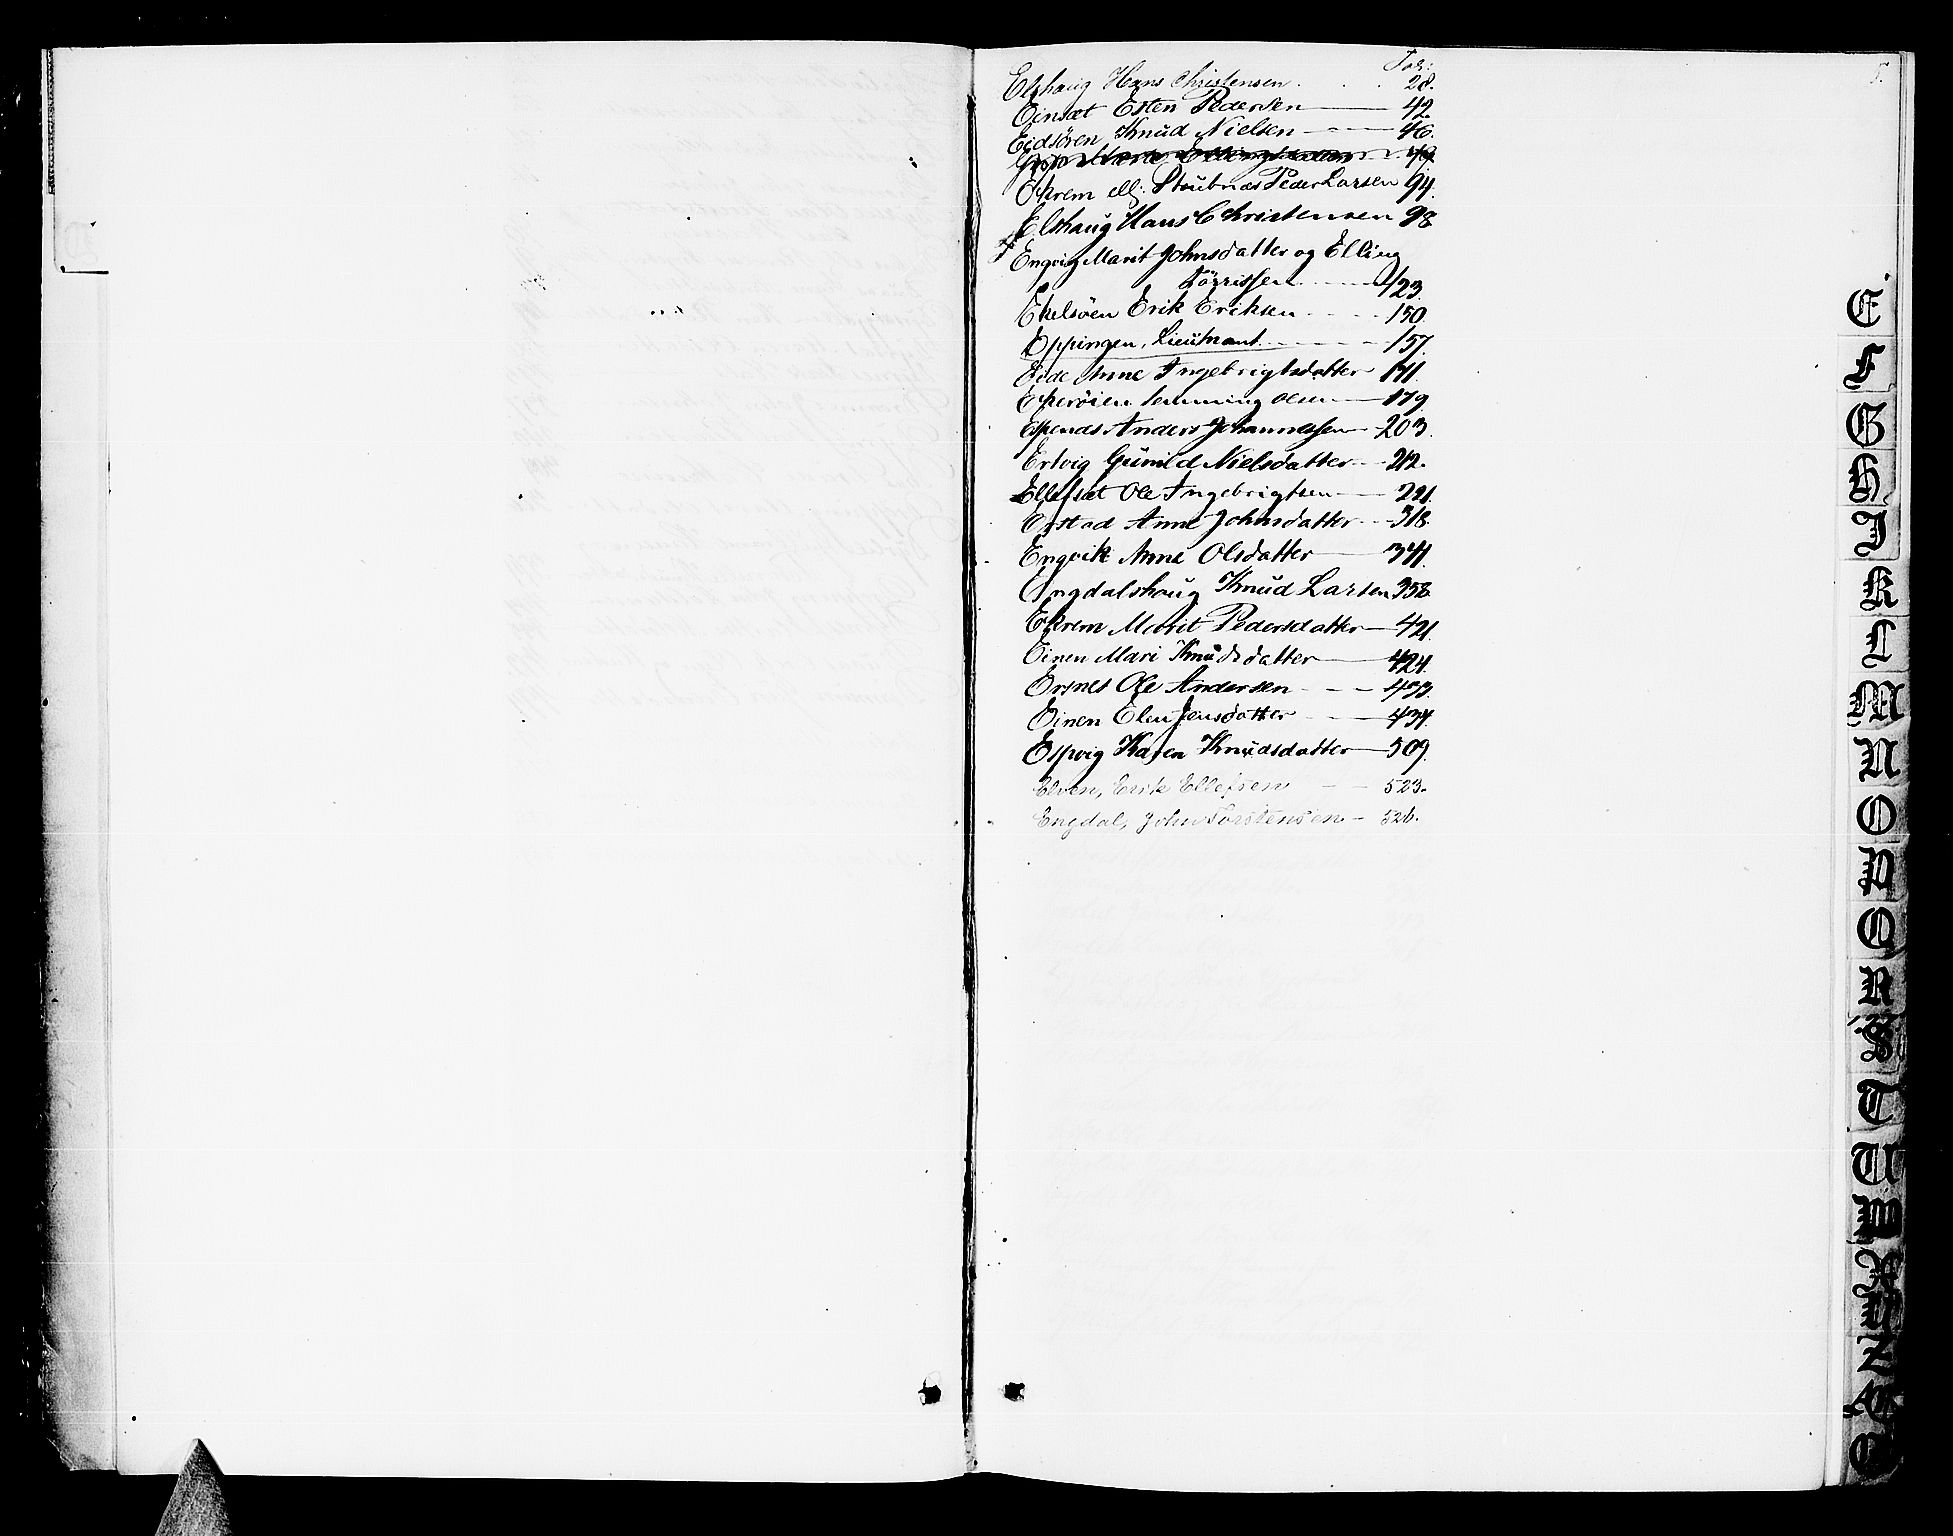 Fol:
5.
Elshaug Hans Christensen . . . 28.
Einsæt Esten Pedersen — 42.
Eidsören Knud Nielsen — 46.
49.
Ekrem ell: Stubnæs Peder Larsen 94.
Elshaug Hans Christensen 98
Engvig Marit Johnsdatter og Elling
Törrissen 123.
Ekelsöen Erik Eriksen - - - - 150.
Eppingen, Lieutnant - - - 157.
Eide Anne Ingebrigtsdatter 171.
Ekeröien Lemming Olsen — 179.
Espenæs Anders Johannessen — 203.
Ertvig Gunild Nielsdatter - - 212.
Ellefsæt Ole Ingebrigtsen — 221.
Enstad Anne Johnsdatter - - 318.
Engvik Anne Olsdatter — 341.
Engdalshaug Knud Larsen 358
Ekrem Marit Pedersdatter — 421.
Einen Mari Knudsdatter — 424.
Ersnes Ole Andersen - - - 433.
Einen Elen Jensdatter - — 434.
Espvig Karen Knudsdatter — 509.
Elven, Erik Ellefsen - - 523.
Engdal, John Torstensen - 526.
D
E
F
G
H
I
K
L
M
N
O
P
Q
R
S
T
U
W
X
Y
Z
Æ
Ø